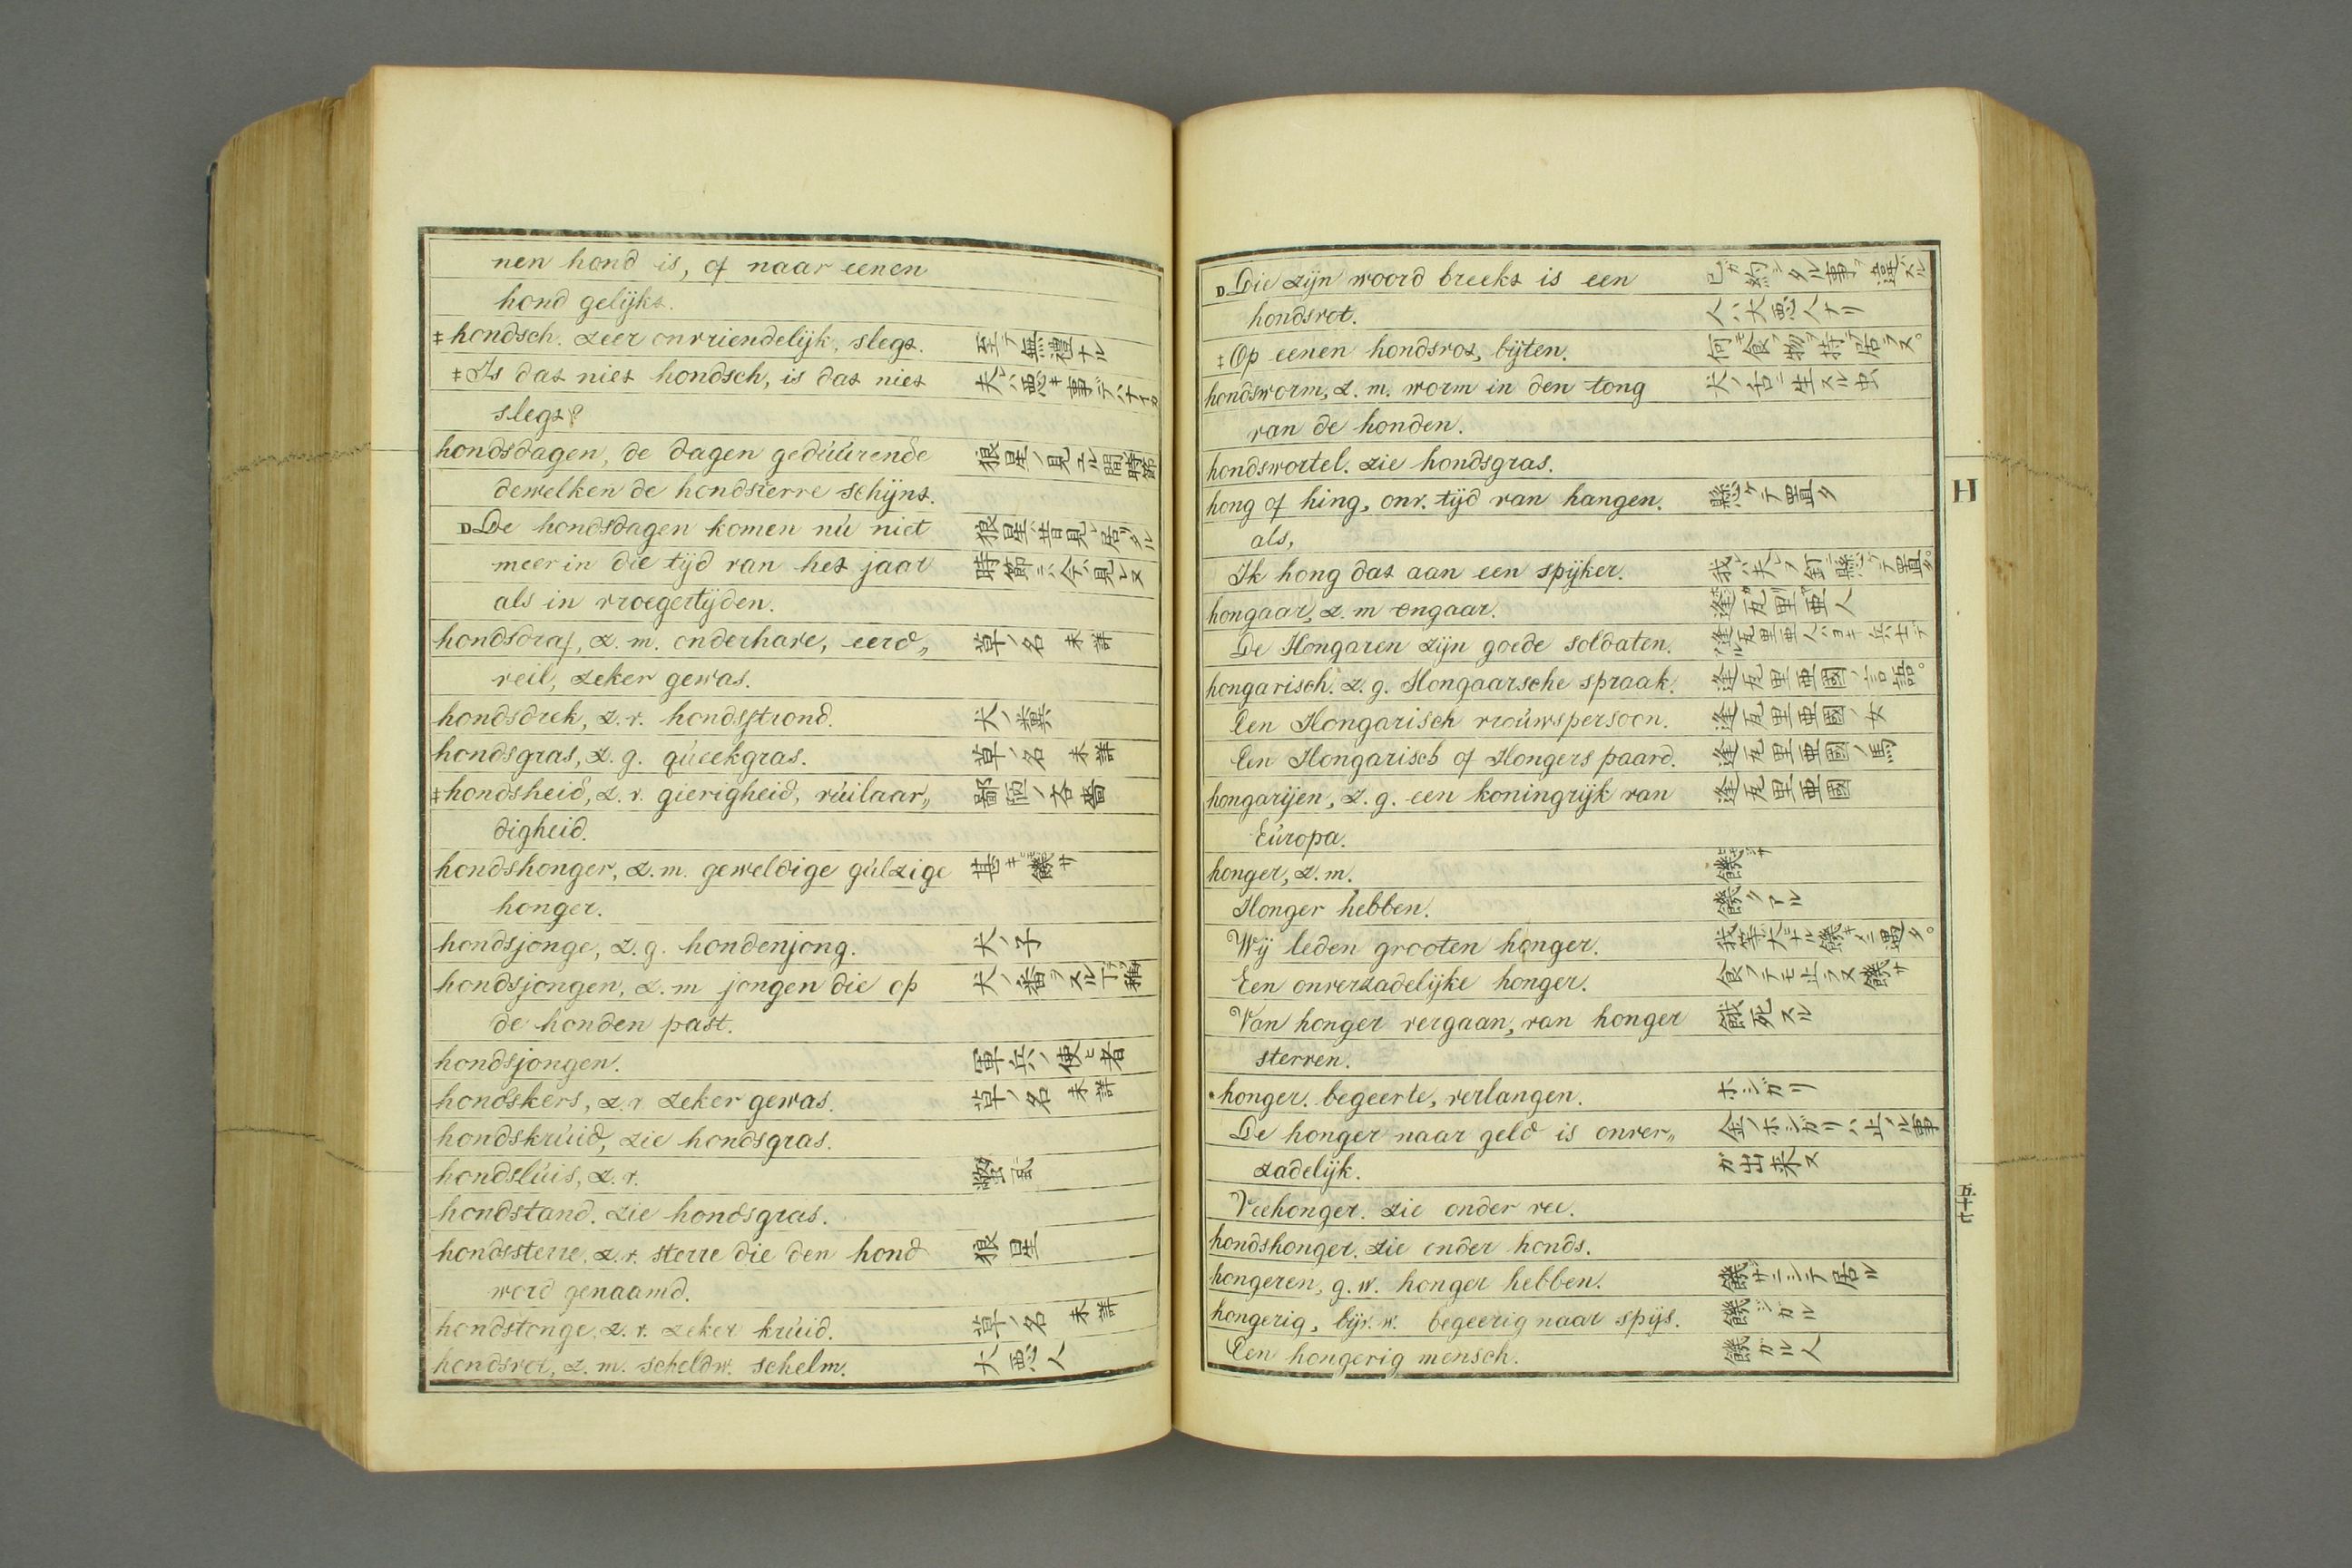 nen hond is, of naar eenen
hond gelijkt.
‡ hondsch. zeer onvriendelijk, slegt. 至テ無禮ナル
‡ Is dat niet hondsch, is dat niet 夫レハ悪キ事デハナイカ
slegt?
hondsdagen, de dagen gedúúrende 狼星ノ見エル間時節
dewelken de hondsterre schijnt.
D De hondsdagen komen nú niet 狼星ノ昔見レ居リタル
meer in die tijd van het jaar 時節ニハ今ハ見ヘヌ
als in vroegertijden.
hondsdraf, z. m. onderhave, eerd„ 草ノ名 未詳
veil, zeker gewas.
hondsdrek, z. v. hondsstrond. 犬ノ糞
hondsgras, z. g. qúeekgras. 草ノ名 未詳
‡ hondsheid, z. v. gierigheid, vúilaar„ 鄙陋ノ吝嗇
digheid.
hondshonger, z. m. geweldige gúlzige 甚キ饑サ
honger.
hondsjonge, z. g. hondenjong. 犬ノ子
hondsjongen, z. m jongen die op 犬ノ番ヲスル丁稚
de honden past.
hondsjongen. 軍兵ノ使ヒ者
hondskers, z. v zeker gewas. 草ノ名 未詳
hondskrúid, zie hondsgras.
hondslúis, z. v. 螕
hondstand. zie hondsgras.
hondssterre, z. v. sterre die den hond 狼星
word genaamd.
hondstonge, z. v. zeker krúid. 草ノ名 未詳
hondsvot, z. m. scheldw. schelm. 大悪人
D Die zijn woord breekt is een 己ガ約シタル事ヲ違ヘスル
hondsvot. 人ハ大悪人ナリ
‡ Op eenen hondsvot, bijten. 何モ食フ物ヲ持テ居ラヌ。
hondsworm, z. m. worm in den tong 犬ノ舌ニ生スル虫
van de honden.
hondswortel. zie hondsgras.
hong of hing, onv. tijd van hangen. 懸ケテ置タ
als,
Ik hong dat aan een spijker. 我ハ夫レヲ釘ニ懸ケテ置タ。
hongaar, z. m ongaar. 逢瓦里亜人
De Hongaren zijn goede soldaten. 逢瓦里亜人ハヨキ兵士デ
hongarisch. z. g. Hongaarsche spraak. 逢瓦里亜國ノ言語。
Een Hongarisch vroúwspersoon. 逢瓦里亜國ノ女
Een Hongarisch of Hongers paard. 逢瓦里亜國ノ馬
hongarijen, z. g. een koningrijk van 逢瓦里亜國
Eúropa.
honger, z. m. 饑
Honger hebben. 饑クアル
Wij leden grooten honger. 我等大ナル饑キニ遇タ。
Een onverzadelijke honger. 食フテモ止ラヌ饑サ
Van honger vergaan, van honger 餓死スル
sterven.
• honger. begeerte, verlangen. ホシガリ
De honger naar geld is onver„ 金ノホシガリハ止ル事
zadelijk. ガ出来ヌ
Veehonger. zie onder vee.
hondshonger. zie onder honds.
hongeren, g. w. honger hebben. 饑サニシテ居ル
hongerig, bijv. w. begeerig naar spijs. 饑シガル
Een hongerig mensch. 饑ガル人
H
五十七